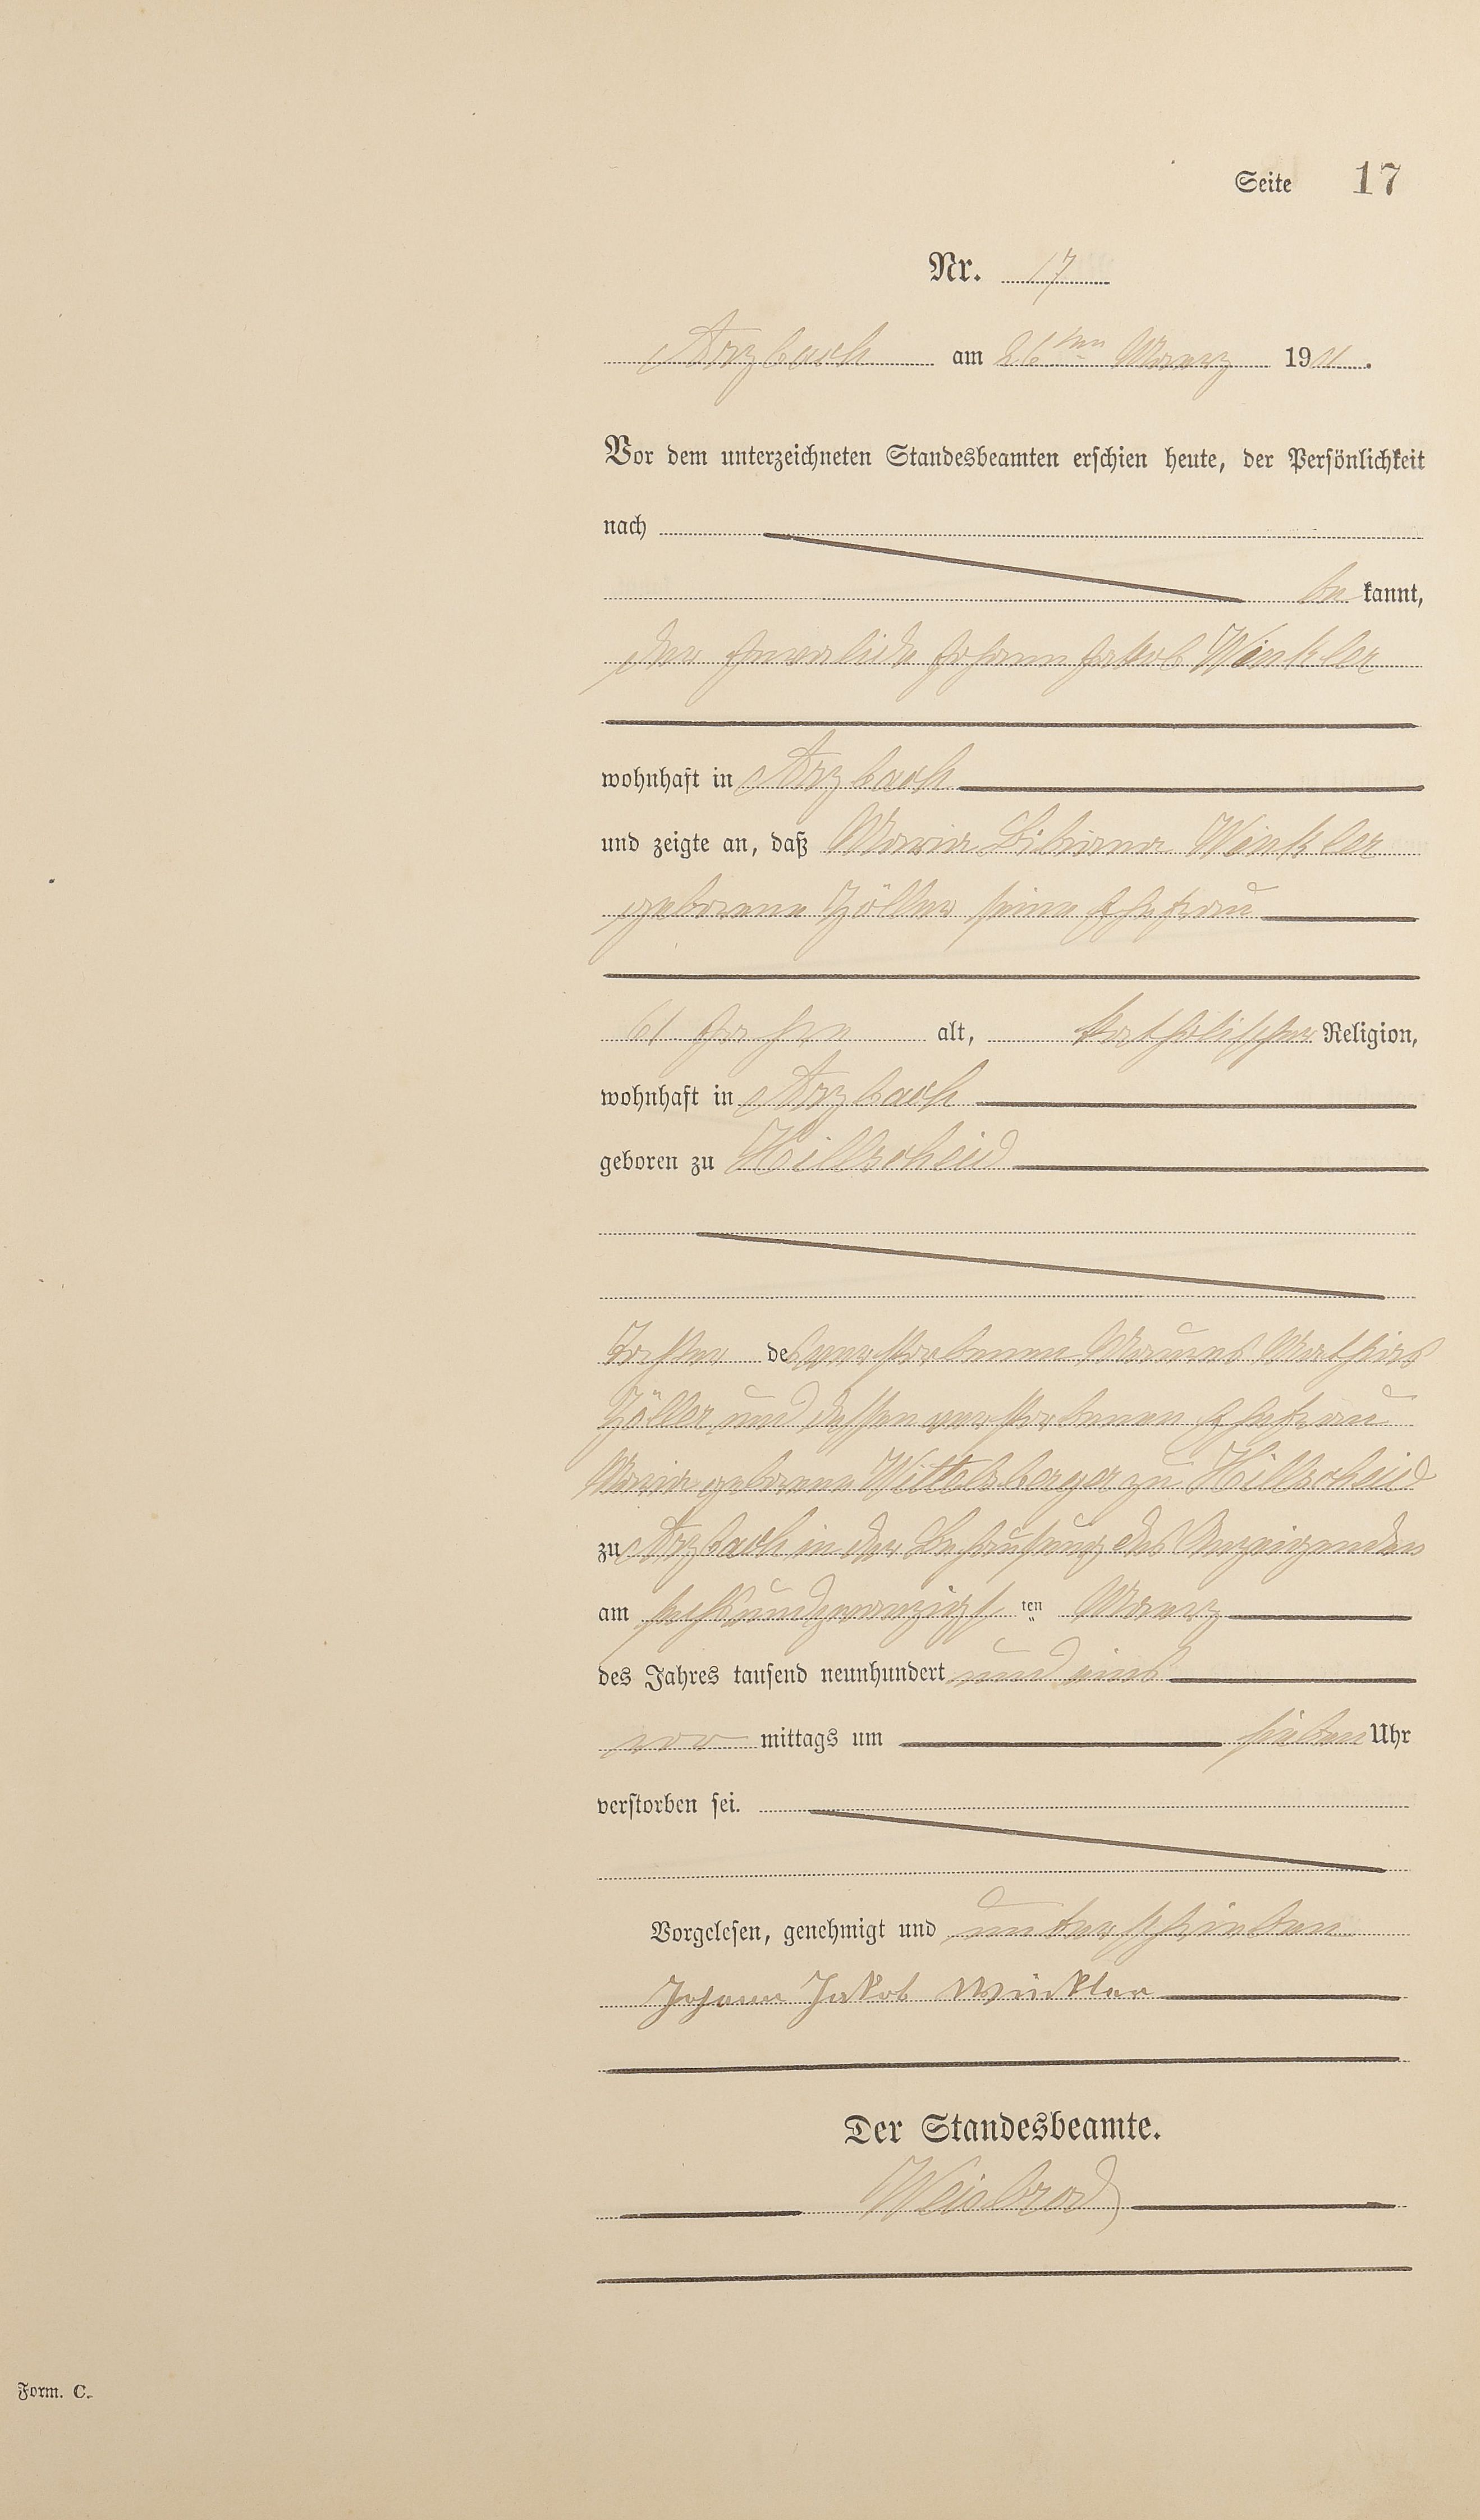 Seite 17
Nr. 17
Arzbach am 26ten Maerz 1901.
Vor dem unterzeichneten Standesbeamten erschien heute, der Persönlichkeit
nach
bekannt,
der Invalide Johann Jakob Winkler
wohnhaft in Arzbach
und zeigte an, daß Maria Bibiana Winkler
geborene Zöller seine Ehefrau
61 Jahre alt, katholischer Religion,
wohnhaft in Arzbach
geboren zu Hillscheid
Tochter des verstorbenen Mathias
Zöller und dessen verstorbenen Ehefrau
Maria geborene Wittelsberger zu Hillscheid
zu Arzbach in der Behausung des Anzeigenden
am sechsundzwanzigsten Maerz
des Jahres tausend neunhundert und eins
vor mittags um sieben Uhr
verstorben sei.
Vorgelesen, genehmigt und unterschrieben
Johann Jakob Winkler
Der Standesbeamte.
Weisbrod
Form. C.